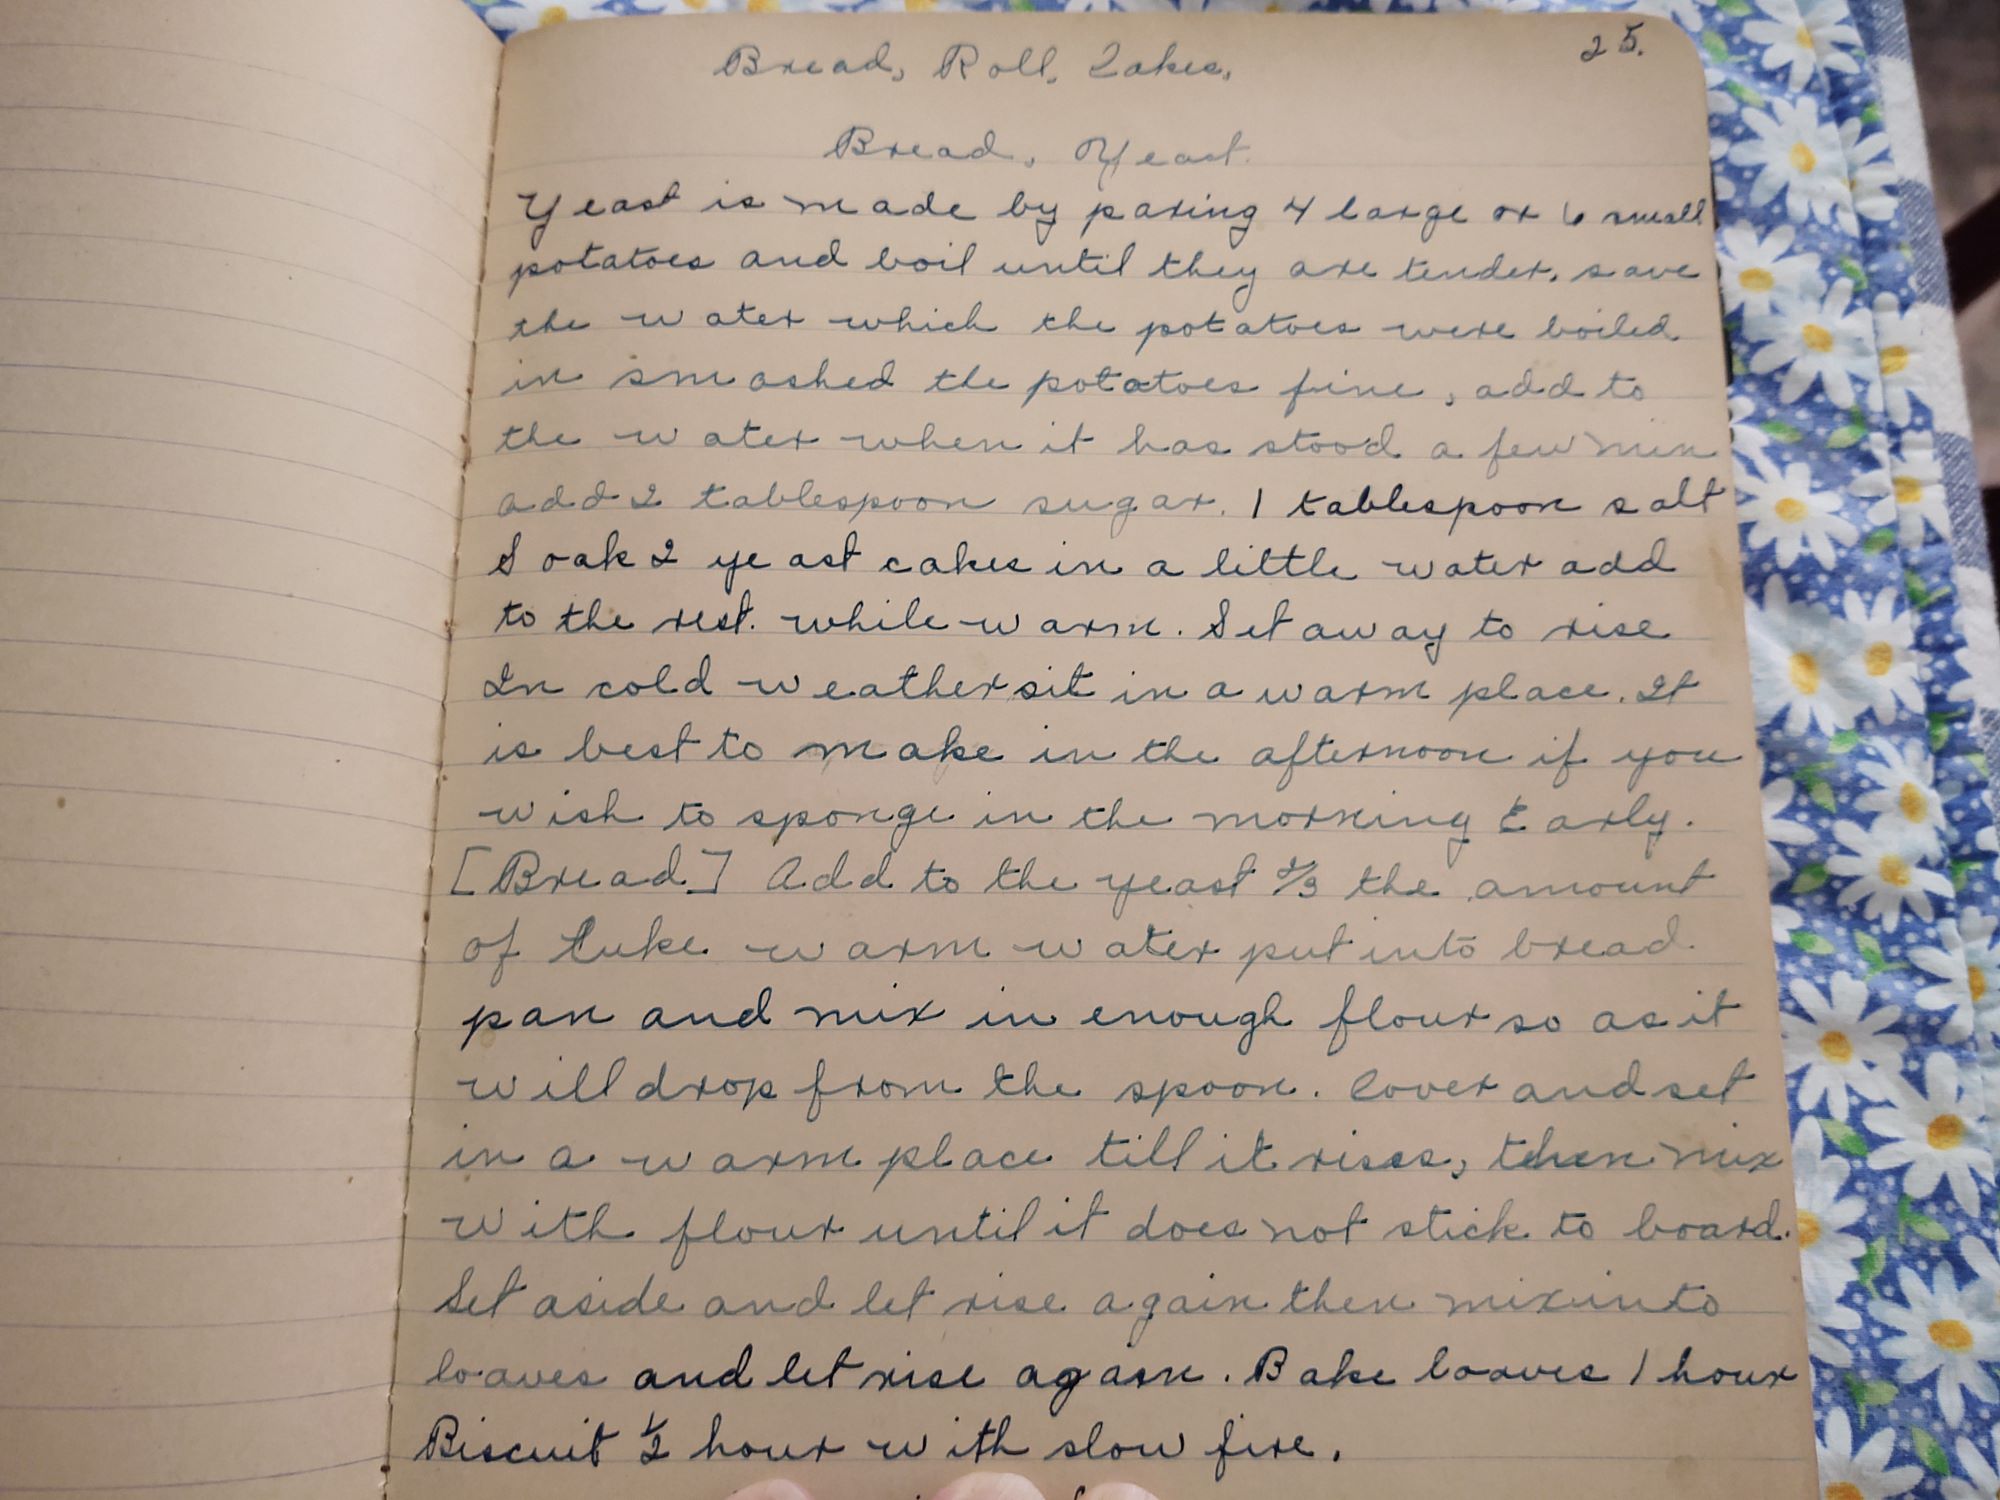 25.
Bread, Roll, Cakes,
Bread, Yeast.
Yeast is made by paring 4 large or 6 small
potatoes and boil until they are tender, save
the water which the potatoes were boiled
in smashed the potatoes fine, add to
the water when it has stood a few min
add 2 tablespoon sugar. 1 tablespoon salt
Soak 2 yeast cakes in a little water add
to the rest. while warm. Set away to rise
In cold weather sit in a warm place. It
is best to make in the afternoon if you
wish to sponge in the morning Early.
[Bread] Add to the yeast 2/3 the amount
of luke warm water put into bread
pan and mix in enough flour so as it
will drop from the spoon. Cover and set
in a warm place till it rises, then mix
with flour until it does not stick to board.
Set aside and let rise again then mix into
loaves and let rise again. Bake loaves 1 hour
Biscuit 1/2 hour with slow fire.